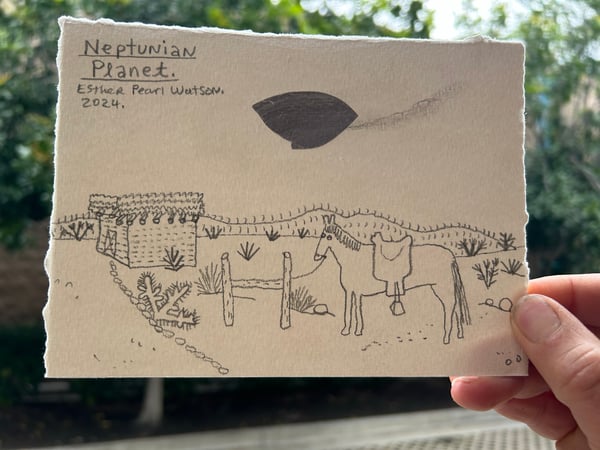 Neptunian
Planet.
Esther Pearl Watson.
2024.